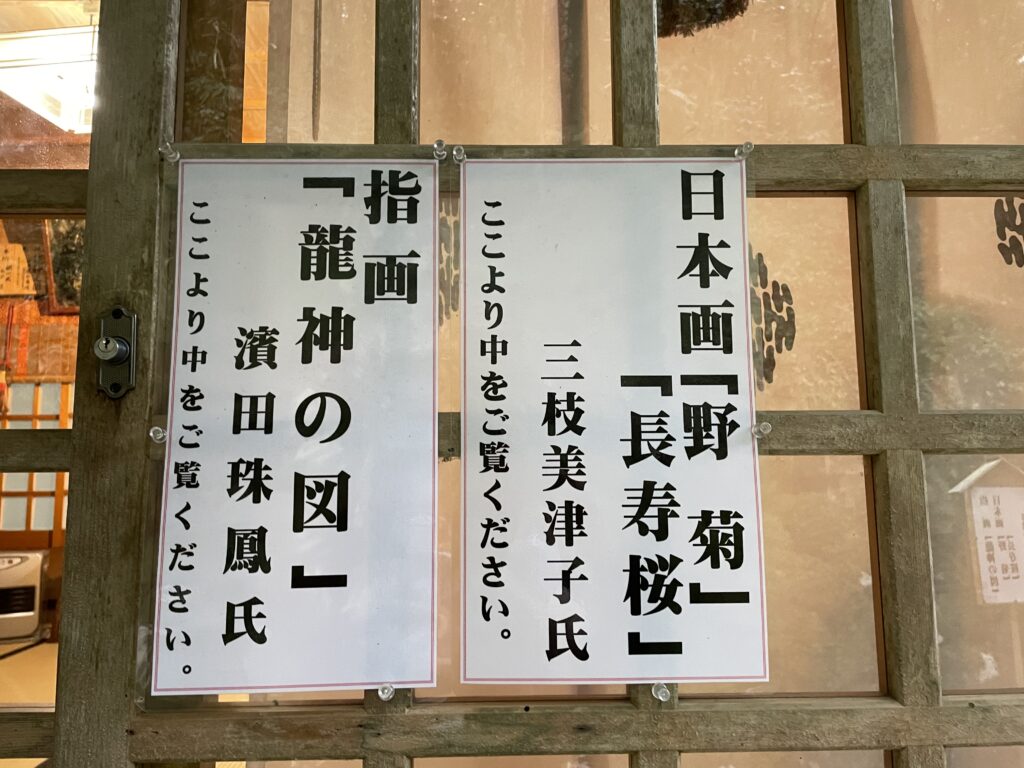 日本画「野菊」
「長寿桜」
三枝美津子氏
ここより中をご覧ください。
指画
「龍神の図」
濱田珠鳳氏
ここより中をご覧ください。